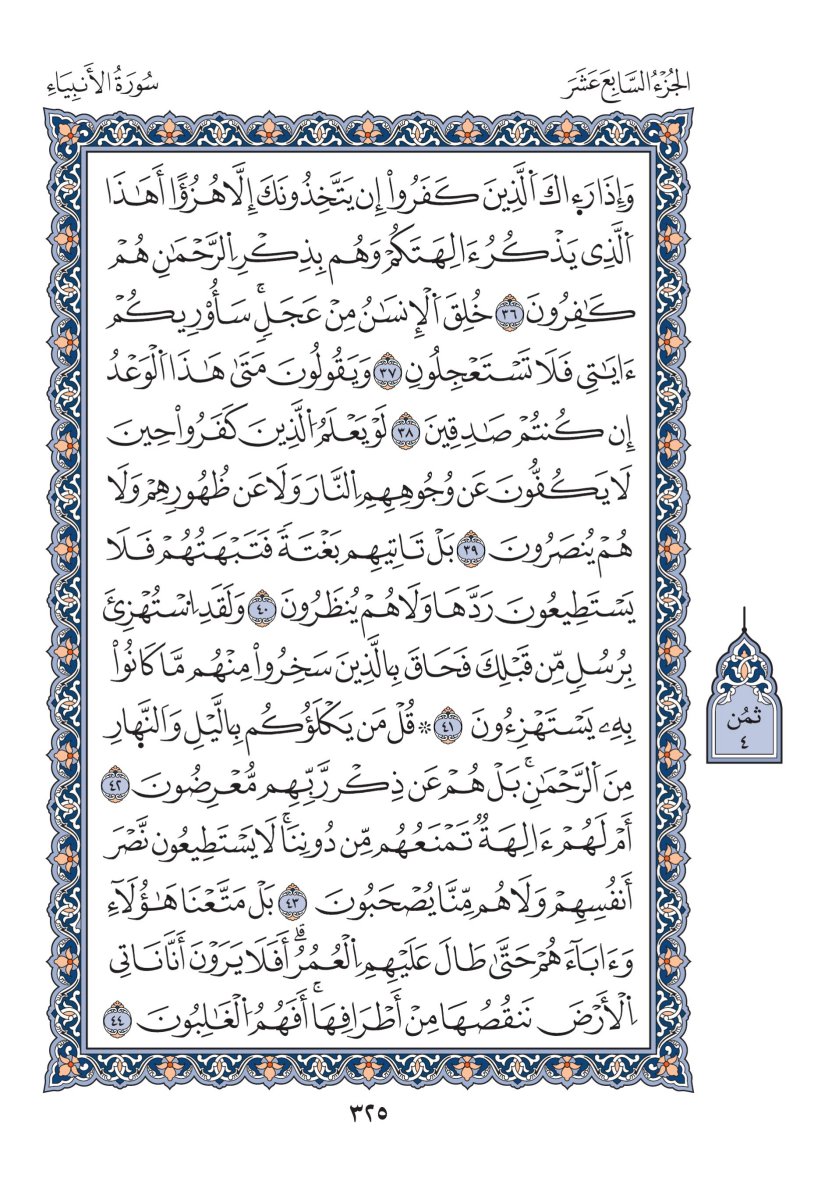 الجُزْءُ السَّابِعَ عَشَرَ
سُورَةُ الأَنبِيَاءِ
وَإِذَا رَءِاكَ اَ۬لَّذِينَ كَفَرُواْ إِن يَتَّخِذُونَكَ إِلَّا هُزُؤًا أَهَٰذَا
اَ۬لَّذِى يَذْكُرُ ءَالِهَتَكُمْ وَهُم بِذِكْرِ اِ۬لرَّحْمَٰنِ هُمْ
كَٰفِرُونَ ٣٦ خُلِقَ اَ۬لْإِنسَٰنُ مِنْ عَجَلٍۚ سَأُوْرِيكُمْ
ءَايَٰتِى فَلَا تَسْتَعْجِلُونِ ٣٧ وَيَقُولُونَ مَتَىٰ هَٰذَا اَ۬لْوَعْدُ
إِن كُنتُمْ صَٰدِقِينَ ٣٨ لَوْ يَعْلَمُ اُ۬لَّذِينَ كَفَرُواْ حِينَ
لَا يَكُفُّونَ عَن وُجُوهِهِمِ اِ۬لنَّارَ وَلَا عَن ظُهُورِهِمْ وَلَا
هُمْ يُنصَرُونَ ٣٩ بَلْ تَاتِيهِم بَغْتَةً فَتَبْهَتُهُمْ فَلَا
يَسْتَطِيعُونَ رَدَّهَا وَلَا هُمْ يُنظَرُونَ ٤٠ وَلَقَدِ اِ۟سْتُهْزِئَ
بِرُسُلٍ مِّن قَبْلِكَ فَحَاقَ بِالَّذِينَ سَخِرُواْ مِنْهُم مَّا كَانُواْ
بِهِۦ يَسْتَهْزِءُونَ ٤١ ۞ قُلْ مَن يَكْلَؤُكُم بِالَّيْلِ وَالنَّهِارِ
مِنَ اَ۬لرَّحْمَٰنِۚ بَلْ هُمْ عَن ذِكْر رَّبِّهِم مُّعْرِضُونَ ٤٢
أَمْ لَهُمْ ءَالِهَةٌ تَمْنَعُهُم مِّن دُونِنَاۚ لَا يَسْتَطِيعُون نَّصْرَ
أَنفُسِهِمْ وَلَا هُم مِّنَّا يُصْحَبُونَ ٤٣ بَلْ مَتَّعْنَا هَٰؤُلَآءِ
وَءَابَآءَهُمْ حَتَّىٰ طَالَ عَلَيْهِمِ اِ۬لْعُمُرُۗ أَفَلَا يَرَوْنَ أَنَّا نَاتِى
اِ۬لْأَرْضَ نَنقُصُهَا مِنْ أَطْرَافِهَاۚ أَفَهُمُ اُ۬لْغَٰلِبُونَ ٤٤
ثمُن
٤
٣٢٥